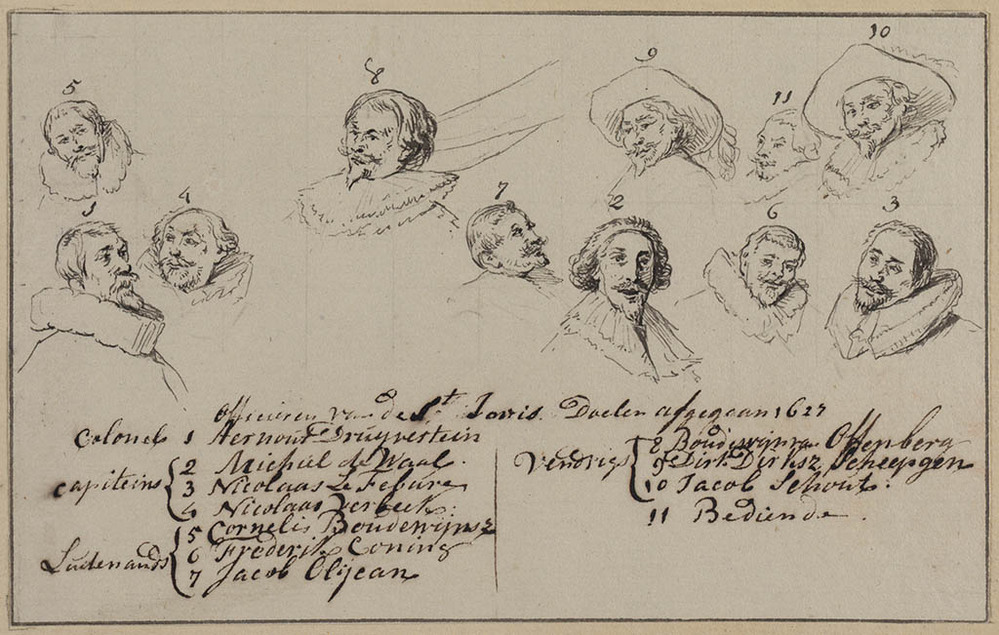 5
8
9
10
11
1
4
7
2
6
3
Officieren van de St. Joris Doelen afgegaan 1627
Colonel 1 Aernout Druyvestein
Capiteins
2 Michiel de Waal.
3 Nicolaas Le Febure
4 Nicolaas Verbeek.
Luitenands
5 Cornelis Boudewijnsz
6 Frederik Coning
7 Jacob Olijcan
Vendrigs
8 Boudewijn van Offenberg
9 Dirk Dirksz. Scheepgen
10 Jacob Schout.
11 Bediende.